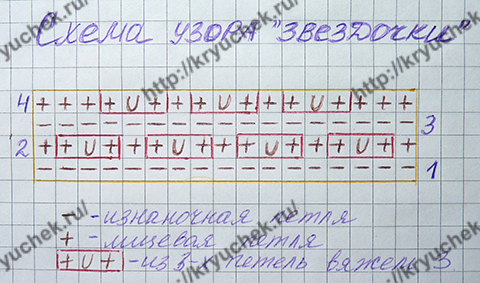 Схема узора "звездочки"
4 + + + + U + + + U + + + U + + + +
− − − − − − − − − − − − − − − − − 3
2 + + U + + + U + + + U + + + U + +
− − − − − − − − − − − − − − − − − 1
− -изнаночная петля
+ -лицевая петля
+ U + -из 3-х петель вяжем 3
yuchek.ru
http://kryuchek.ru
http://kryuchek.ru